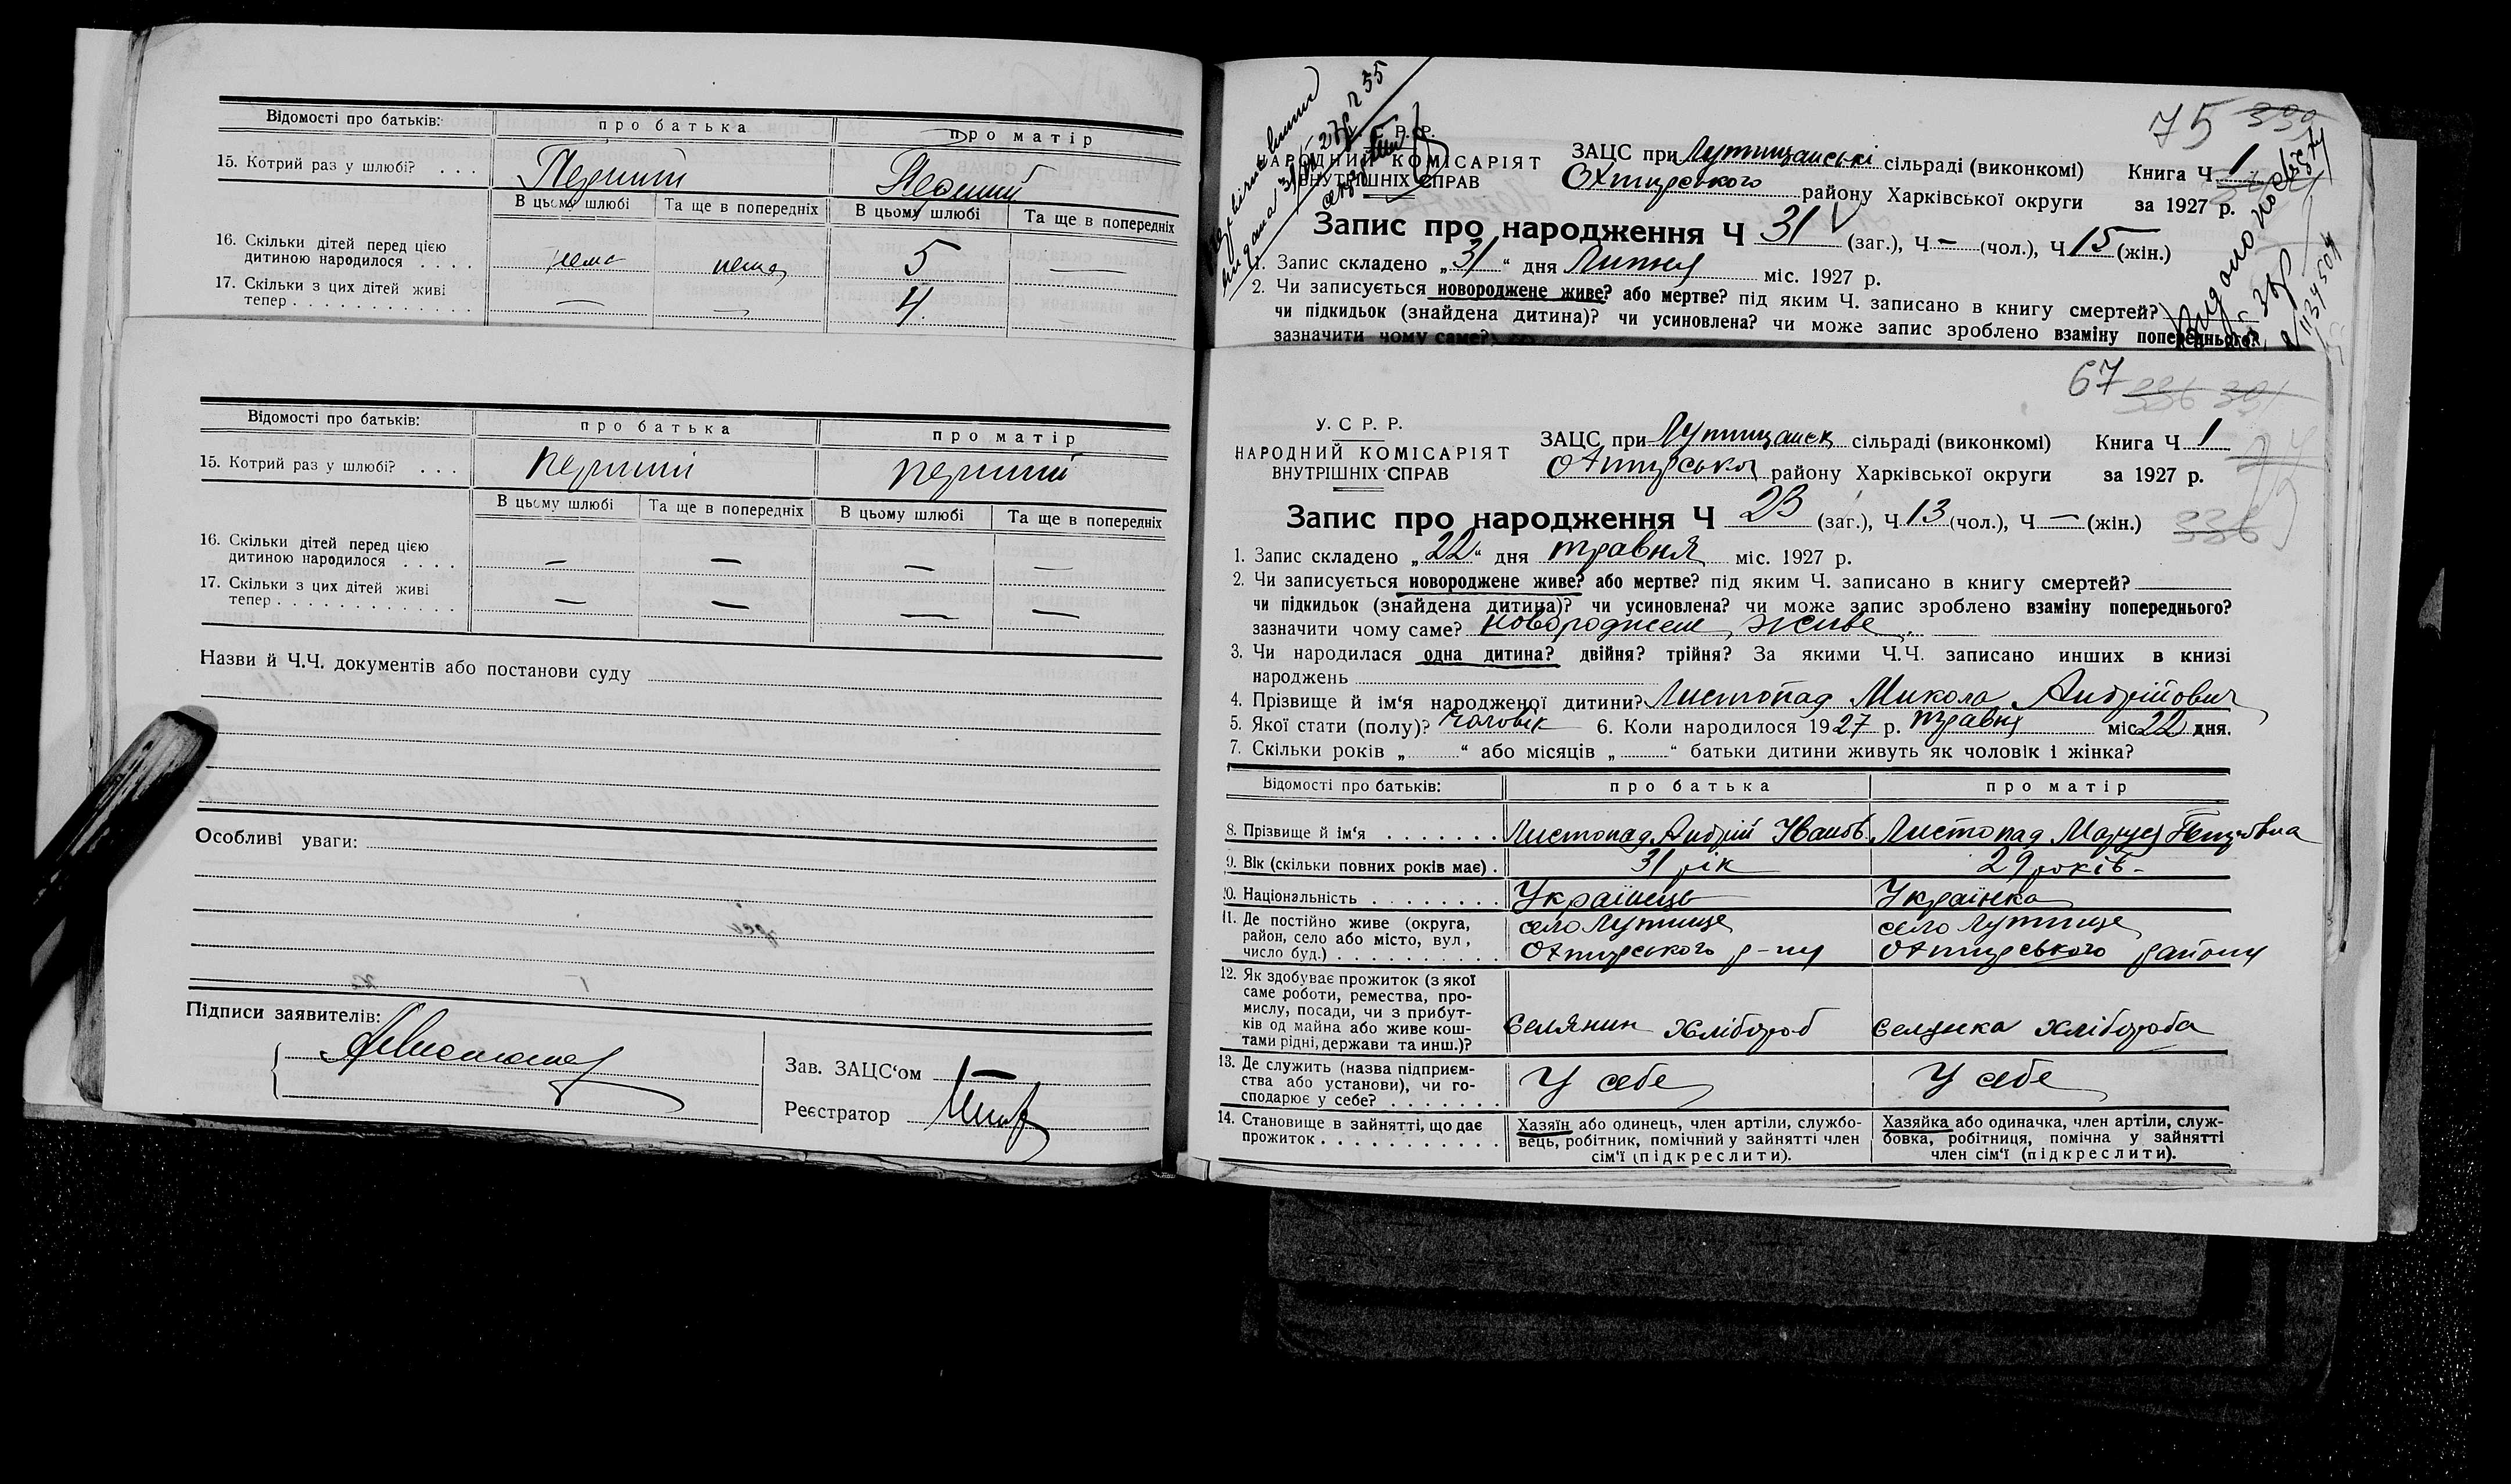 Відомості про батьків: про батька про матір
15. Котрий раз у шлюбі? . . . Перший Перший
В цьому шлюбі Та ще в попередніх В цьому шлюбі Та ще в попередніх
16. Скільки дітей перед цією
дитиною народилося . . . . нема нема 5 —
17. Скільки з цих дітей живі
тепер . . . . . . . . . . . — — 4. —
Відомості про батьків: про батька про матір
15. Котрий раз у шлюбі? . . . перший перший
В цьому шлюбі Та ще в попередніх В цьому шлюбі Та ще в попередніх
16. Скільки дітей перед цією
дитиною народилося . . . . — — — —
17. Скільки з цих дітей живі
тепер . . . . . . . . . . . . — — — —
Назви й Ч.Ч. документів або постанови суду
Особливі уваги:
Підписи заявителів:
Зав. ЗАЦС‘ом —
Реєстратор
75 339
У. С. Р. Р.
НАРОДНИЙ КОМІСАРІЯТ
ВНУТРІШНІХ СПРАВ
ЗАЦС при Лутищанські сільраді (виконкомі) Книга Ч 1
Охтирського району Харківської округи за 1927 р.
Запис про народження Ч 31 (заг.), Ч – (чол.), Ч 15 (жін.)
1. Запис складено „31“ дня Липня міс. 1927 р.
2. Чи записується новороджене живе? або мертве? під яким Ч. записано в книгу смертей?
чи підкидьок (знайдена дитина)? чи усиновлена? чи може запис зроблено взаміну попереднього?
зазначити чому саме?
67 336 391
У. С Р. Р.
НАРОДНИЙ КОМІСАРІЯТ
ВНУТРІШНІХ СПРАВ
ЗАЦС при Лутищанск сільраді (виконкомі) Книга Ч 1
Охтирської району Харківської округи за 1927 р.
Запис про народження Ч 23 (заг.), Ч 13 (чол.), Ч — (жін.)
336
1. Запис складено „22“ дня травня міс. 1927 р.
2. Чи записується новороджене живе? або мертве? під яким Ч. записано в книгу смертей?
чи підкидьок (знайдена дитина)? чи усиновлена? чи може запис зроблено взаміну попереднього?
зазначити чому саме? новороджене живе. —
3. Чи народилася одна дитина? двійня? трійня? За якими Ч.Ч. записано инших в книзі
народжень
4. Прізвище й ім‘я народженої дитини? Листопад Микола Андрійович
5. Якої стати (полу)? чоловік 6. Коли народилося 1927 р. травня міс. 22 дня.
7. Скільки років „ “ або місяців „ “ батьки дитини живуть як чоловік і жінка?
Відомості про батьків: про батька про матір
8. Прізвище й ім‘я . . . . . . . Листопад Андрій Іванов. Листопад Маруся Петровна
9. Вік (скільки повних років має) . 31 рік 29 років –
10. Національність . . . . . . . . Українець Українка
11. Де постійно живе (округа,
район, село або місто, вул,
число буд.) . . . . . . . . . . .
село Лутище село Лутище
Охтирського р-ну Охтирського району
12. Як здобуває прожиток (з якої
саме роботи, ремества, про-
мислу, посади, чи з прибут-
ків од майна або живе кош-
тами рідні, держави та инш.)?
Селянин хлібороб Селянка хлібороба
13. Де служить (назва підприєм-
ства або установи), чи го-
сподарює у себе? . . . . . . .
У себе У себе
14. Становище в зайнятті, що дає
прожиток . . . . . . . . . . . .
Хазяїн або одинець, член артіли, службо-
вець, робітник, помічний у зайнятті член
сім‘ї (підкреслити).
Хазяйка або одиначка, член артіли, служ-
бовка, робітниця, помічна у зайнятті
член сім‘ї (підкреслити).